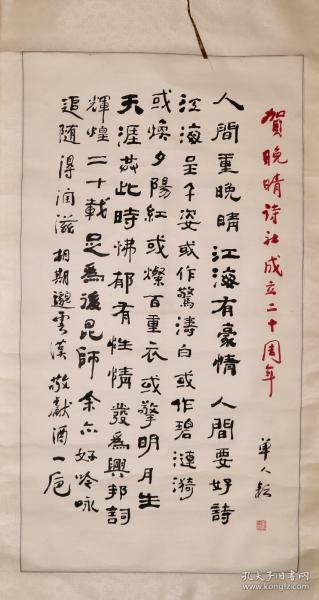 賀晚晴詩社成立二十周年
單人耘
人間重晚晴江海有豪情人間要好詩
江海呈千姿或作驚濤白或作碧漣漪
或煥夕陽紅或燦百重衣或擎明月生
天涯共此時怫郁有性情發為興邦詞
輝煌二十載足為後昆師余亦好吟咏
追隨得潤滋相期邈雲漢敬獻酒一卮
孔夫子旧书网